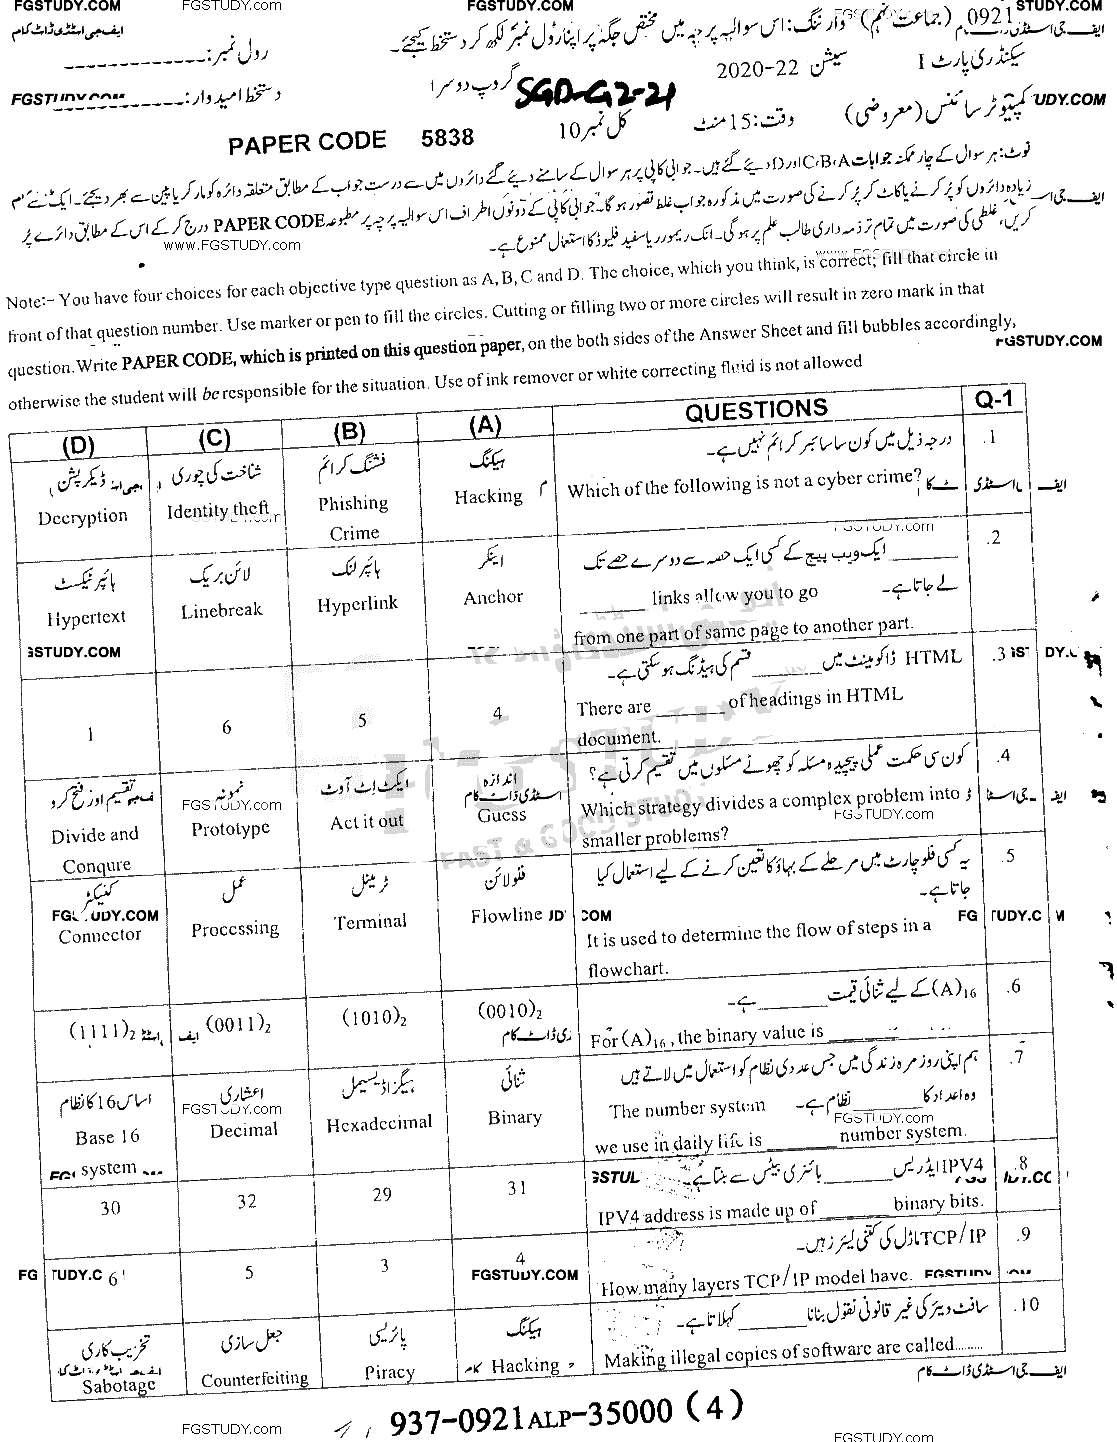 FGSTUDY.COM FGSTUDY.com FGSTUDY.COM FGSTUDY.com FGSTUDY.COM
0921 (جماعت نہم) وارننگ: اس سوالیہ پرچہ میں مختص جگہ پر اپنا رول نمبر لکھ کر دستخط کیجئے۔ ایف جی اسٹڈی ڈاٹ کام
سیکنڈری پارٹ I سیشن 2020-22 گروپ دوسرا رول نمبر: --------------
SGD-G2-21
کمپیوٹر سائنس (معروضی) وقت: 15 منٹ کل نمبر 10 دستخط امیدوار: --------------
FGSTUDY.COM
PAPER CODE 5838
نوٹ: ہر سوال کے چار ممکنہ جوابات C،B،A اور D دیئے گئے ہیں۔ جوابی کاپی پر ہر سوال کے سامنے دیئے گئے دائروں میں سے درست جواب کے مطابق متعلقہ دائرہ کو مارکر یا پین سے بھر دیجئے۔ ایک سے
زیادہ دائروں کو پُر کرنے یا کاٹ کر پُر کرنے کی صورت میں مذکورہ جواب غلط تصور ہو گا۔ جوابی کاپی کے دونوں اطراف اس سوالیہ پرچہ پر مطبوعہ PAPER CODE درج کر کے اس کے مطابق دائرے پُر
کریں، غلطی کی صورت میں تمام تر ذمہ داری طالب علم پر ہوگی۔ انک ریموور یا سفید فلیوڈ کا استعمال ممنوع ہے۔
www.FGSTUDY.com www.FGSTUDY.com
Note:- You have four choices for each objective type question as A, B, C and D. The choice, which you think, is correct; fill that circle in
front of that question number. Use marker or pen to fill the circles. Cutting or filling two or more circles will result in zero mark in that
question. Write PAPER CODE, which is printed on this question paper, on the both sides of the Answer Sheet and fill bubbles accordingly,
FGSTUDY.COM
otherwise the student will be responsible for the situation. Use of ink remover or white correcting fluid is not allowed
(D) (C) (B) (A) QUESTIONS Q-1
ڈیکرپشن شناخت کی چوری فشنگ کرائم ہیکنگ درجہ ذیل میں کون سا سائبر کرائم نہیں ہے۔ .1
Decryption Identity theft Phishing Crime Hacking Which of the following is not a cyber crime?
FGSTUDY.com
ہائپر ٹیکسٹ لائن بریک ہائپر لنک اینکر ______ ایک ویب پیج کے کسی ایک حصہ سے دوسرے حصے تک .2
لے جاتا ہے۔
Hypertext Linebreak Hyperlink Anchor ______ links allow you to go
from one part of same page to another part.
HTML ڈاکومینٹ میں ______ قسم کی ہیڈنگ ہو سکتی ہے۔ .3
1 6 5 4 There are ______ of headings in HTML
document.
تقسیم اور فتح کرو نمونہ ایکٹ اِٹ آؤٹ اندازہ کون سی حکمت عملی پیچیدہ مسئلہ کو چھوٹے مسئلوں میں تقسیم کرتی ہے؟ .4
Divide and Conqure Prototype Act it out Guess Which strategy divides a complex problem into
smaller problems?
FGSTUDY.com FGSTUDY.com
FAST & GOOD STUDY
کنیکٹر عمل ٹرمینل فلو لائن یہ کسی فلو چارٹ میں مرحلے کے بہاؤ کا تعین کرنے کے لیے استعمال کیا .5
جاتا ہے۔
Connector Processing Terminal Flowline It is used to determine the flow of steps in a
flowchart.
(A)16 کے لیے ثنائی قیمت ______ ہے۔ .6
(1111)2 (0011)2 (1010)2 (0010)2 For (A)16, the binary value is ______
اساس 16 کا نظام اعشاری ہیگزاڈیسیمل ثنائی ہم اپنی روز مرہ زندگی میں جس عددی نظام کو استعمال میں لاتے ہیں .7
وہ اعداد کا ______ نظام ہے۔
Base 16 system Decimal Hexadecimal Binary The number system
we use in daily life is ______ number system.
FGSTUDY.com FGSTUDY.com
IPV4 ایڈریس ______ بائنری بیٹس سے بنتا ہے۔ .8
30 32 29 31 IPV4 address is made up of ______ binary bits.
TCP/IP ماڈل کی کتنی لیئرز ہیں۔ .9
6 5 3 4 How many layers TCP/IP model have.
FGSTUDY.COM
تخریب کاری جعل سازی پائریسی ہیکنگ سافٹ ویئر کی غیر قانونی نقول بنانا ______ کہلاتا ہے۔ .10
Sabotage Counterfeiting Piracy Hacking Making illegal copies of software are called........
ایف جی اسٹڈی ڈاٹ کام
937-0921ALP-35000 (4)
FGSTUDY.com FGSTUDY.com